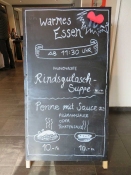 Warmes
Essen
AB 11:30 UHR
Rindsgulasch-
Suppe
Penne mit Sauce
ODER
10.-
10.-